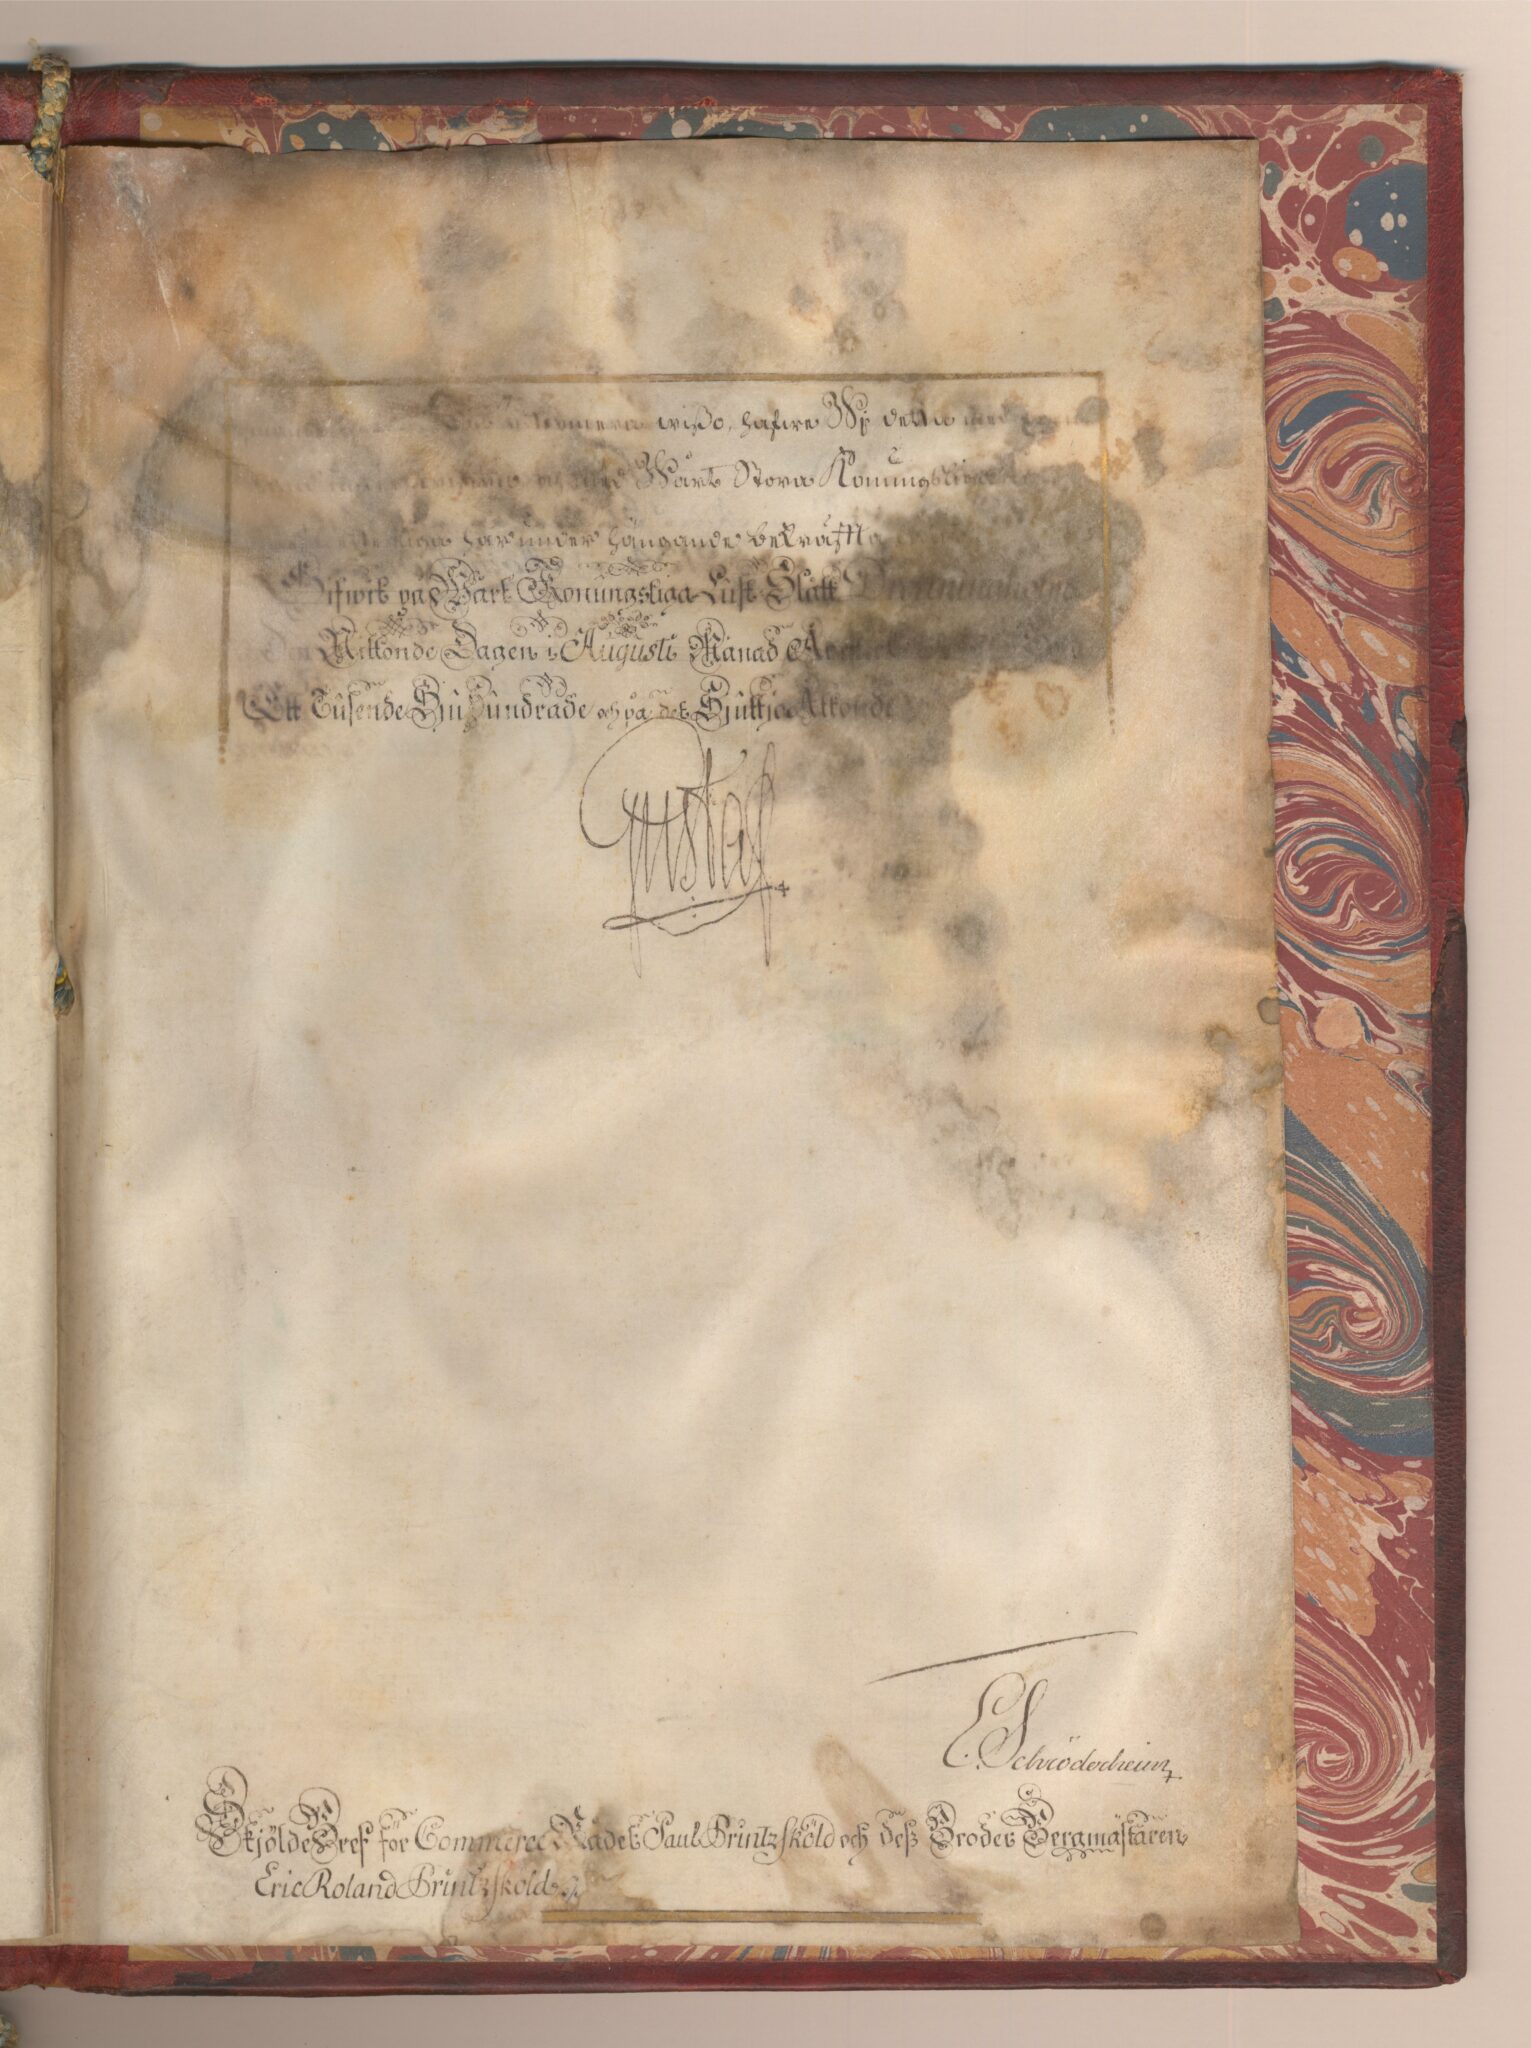 wißo, hafwe Wij detta med
med Wårt Stora Konungsliga
här under hängande bekräfta
Gifwit på Wårt Konungsliga Lust Slått Drottningholm
Den Nittonde Dagen i Augusti Månad
Ett Tusende Sju Hundrade och på det Sjuttjo Åttonde
Gustaf
E. Schröderheim
Skjölde Bref för Commerce Rådet Paul Printzsköld och deß Broder Bergmästaren
Eric Roland Printzsköld